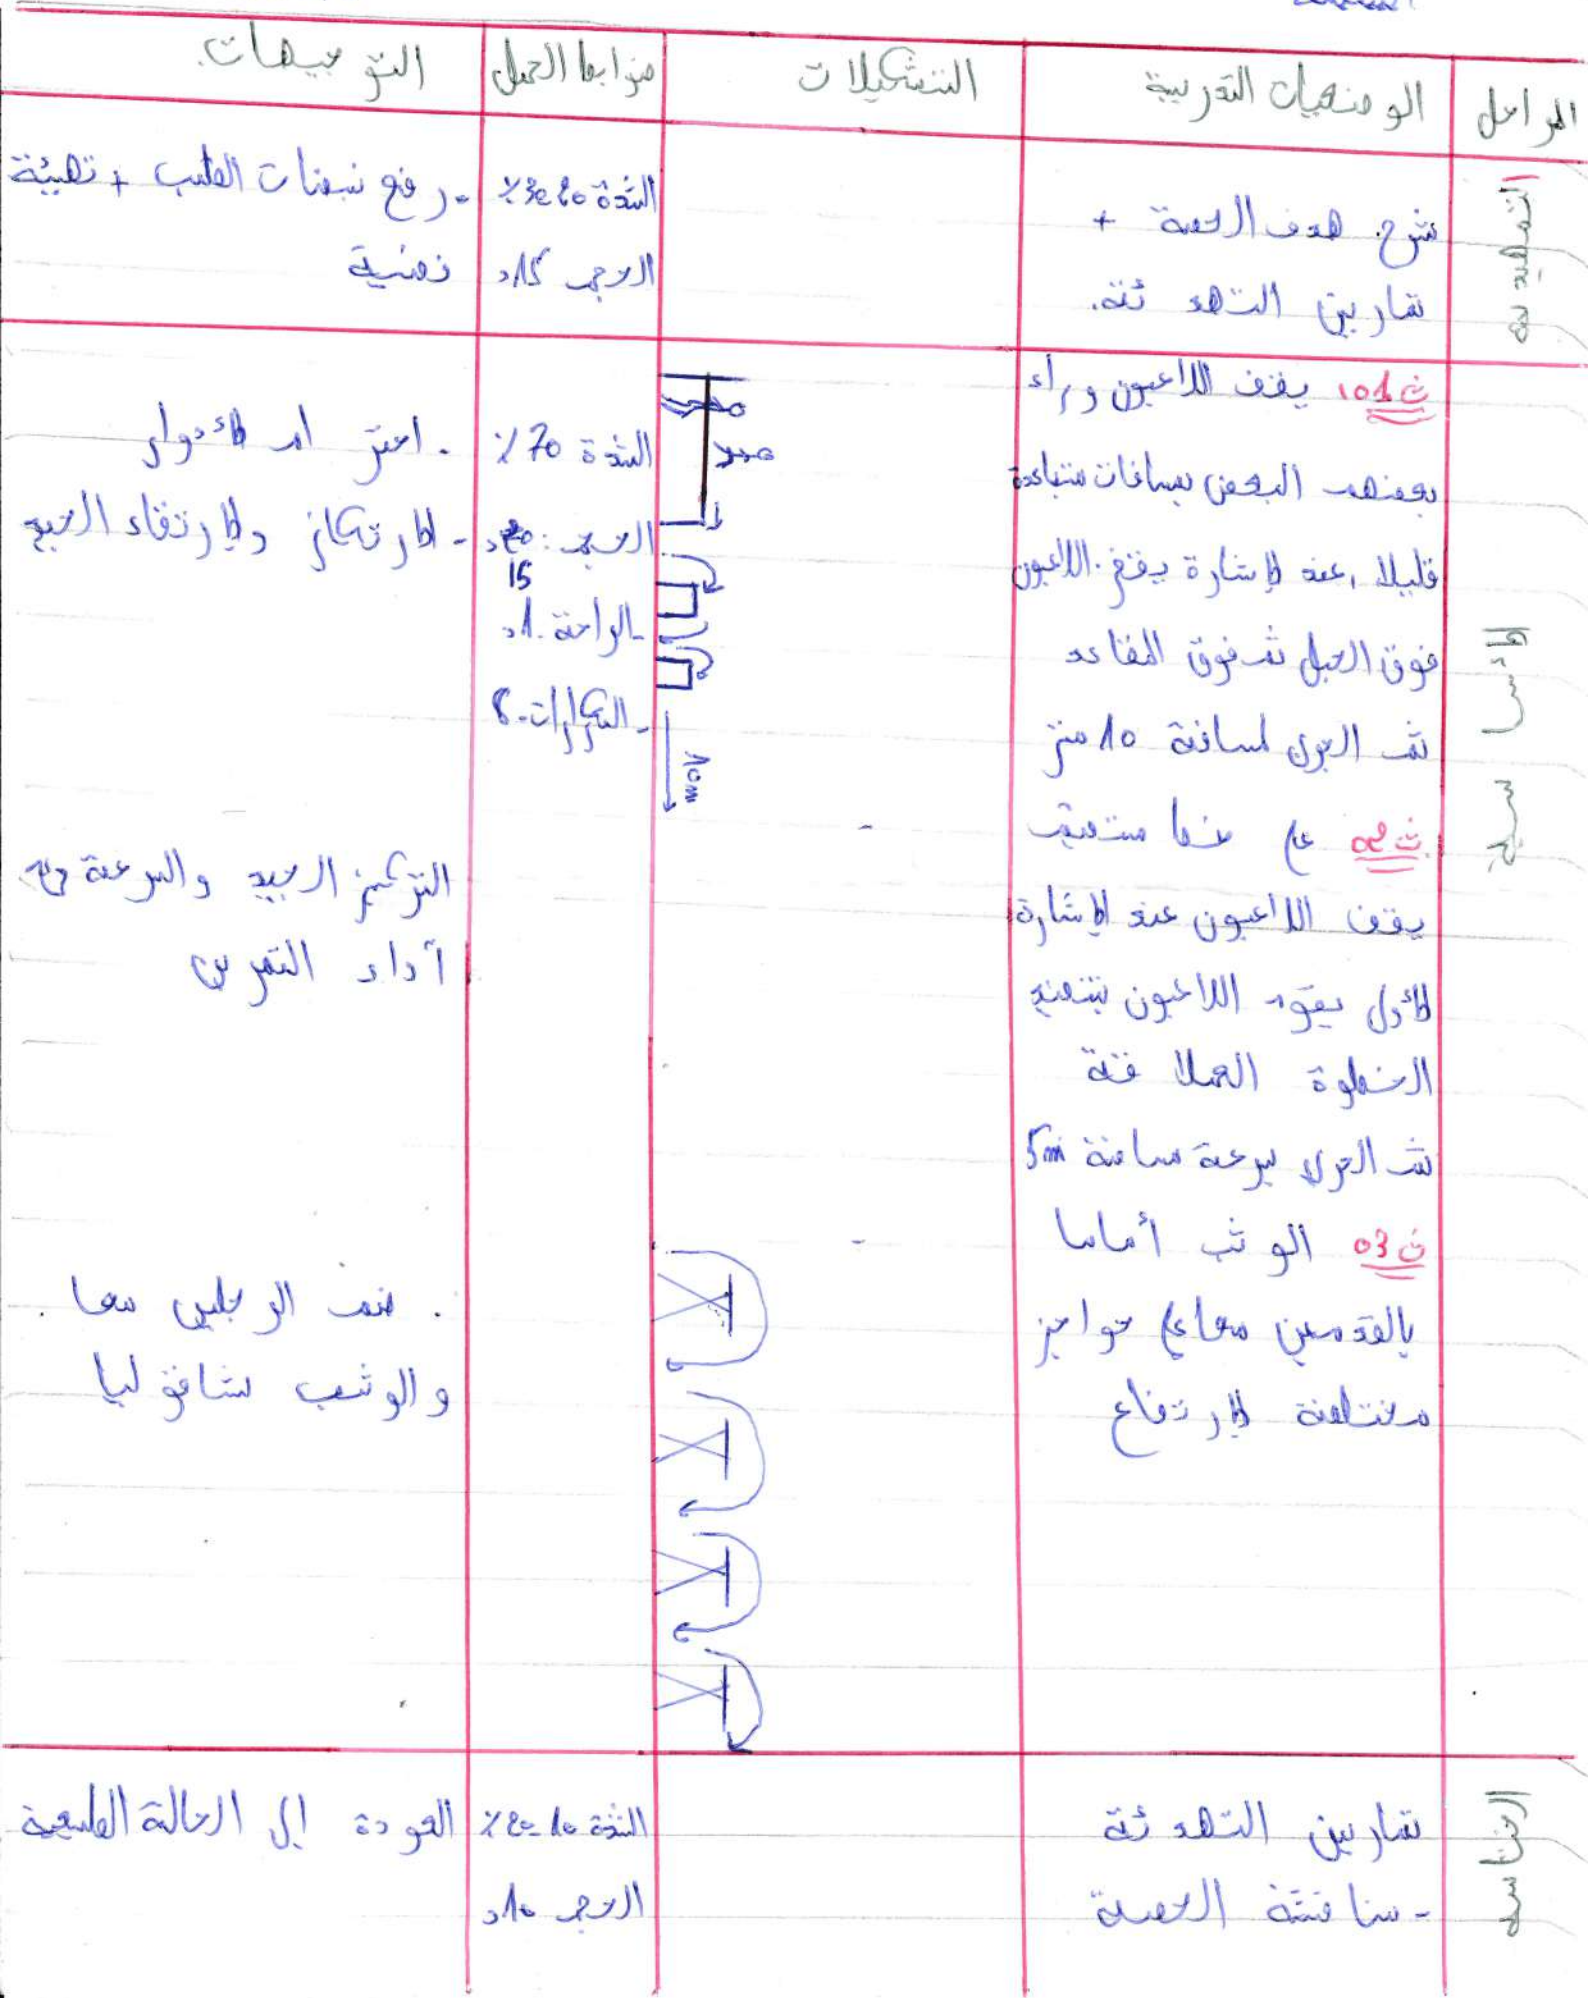 المراحل
الوضعيات التدريبية
التشكيلات
ضوابط الحمل
التوجيهات.
التمهيدية
شرح. هدف الحصة +
تمارين التهدئة.
الشدة 20 30%
الحجم 15د
- رفع نبضات القلب + تهيئة
ذهنية
ت 01 يقف اللاعبون وراء
بعضهم البعض بمسافات متباعدة
قليلا، عند الإشارة يقفز. اللاعبون
فوق الحبل ثم فوق المقاعد
ثم الجري لمسافة 10 متر
ت 02 على خط مستقيم
يقف اللاعبون عند الإشارة
الأولى يقوم اللاعبون بتنفيذ
الخطوة العملاقة
ثم الجري بسرعة مسافة 5m
ت 03 الوثب أماما
بالقدمين معا على حواجز
مختلفة الارتفاع
10m
الشدة 70%
الحجم:
15
- الراحة. 1د
- التكرارات - 8
. احترام الأدوار
- الارتكاز والارتقاء الجيد
التركيز الجيد والسرعة في
أداء التمرين
. ضم الرجلين معا.
والوثب شاقوليا
تمارين التهدئة
- مناقشة الحصة
الشدة 10-20%
الحجم 10د
العودة إلى الحالة الطبيعية